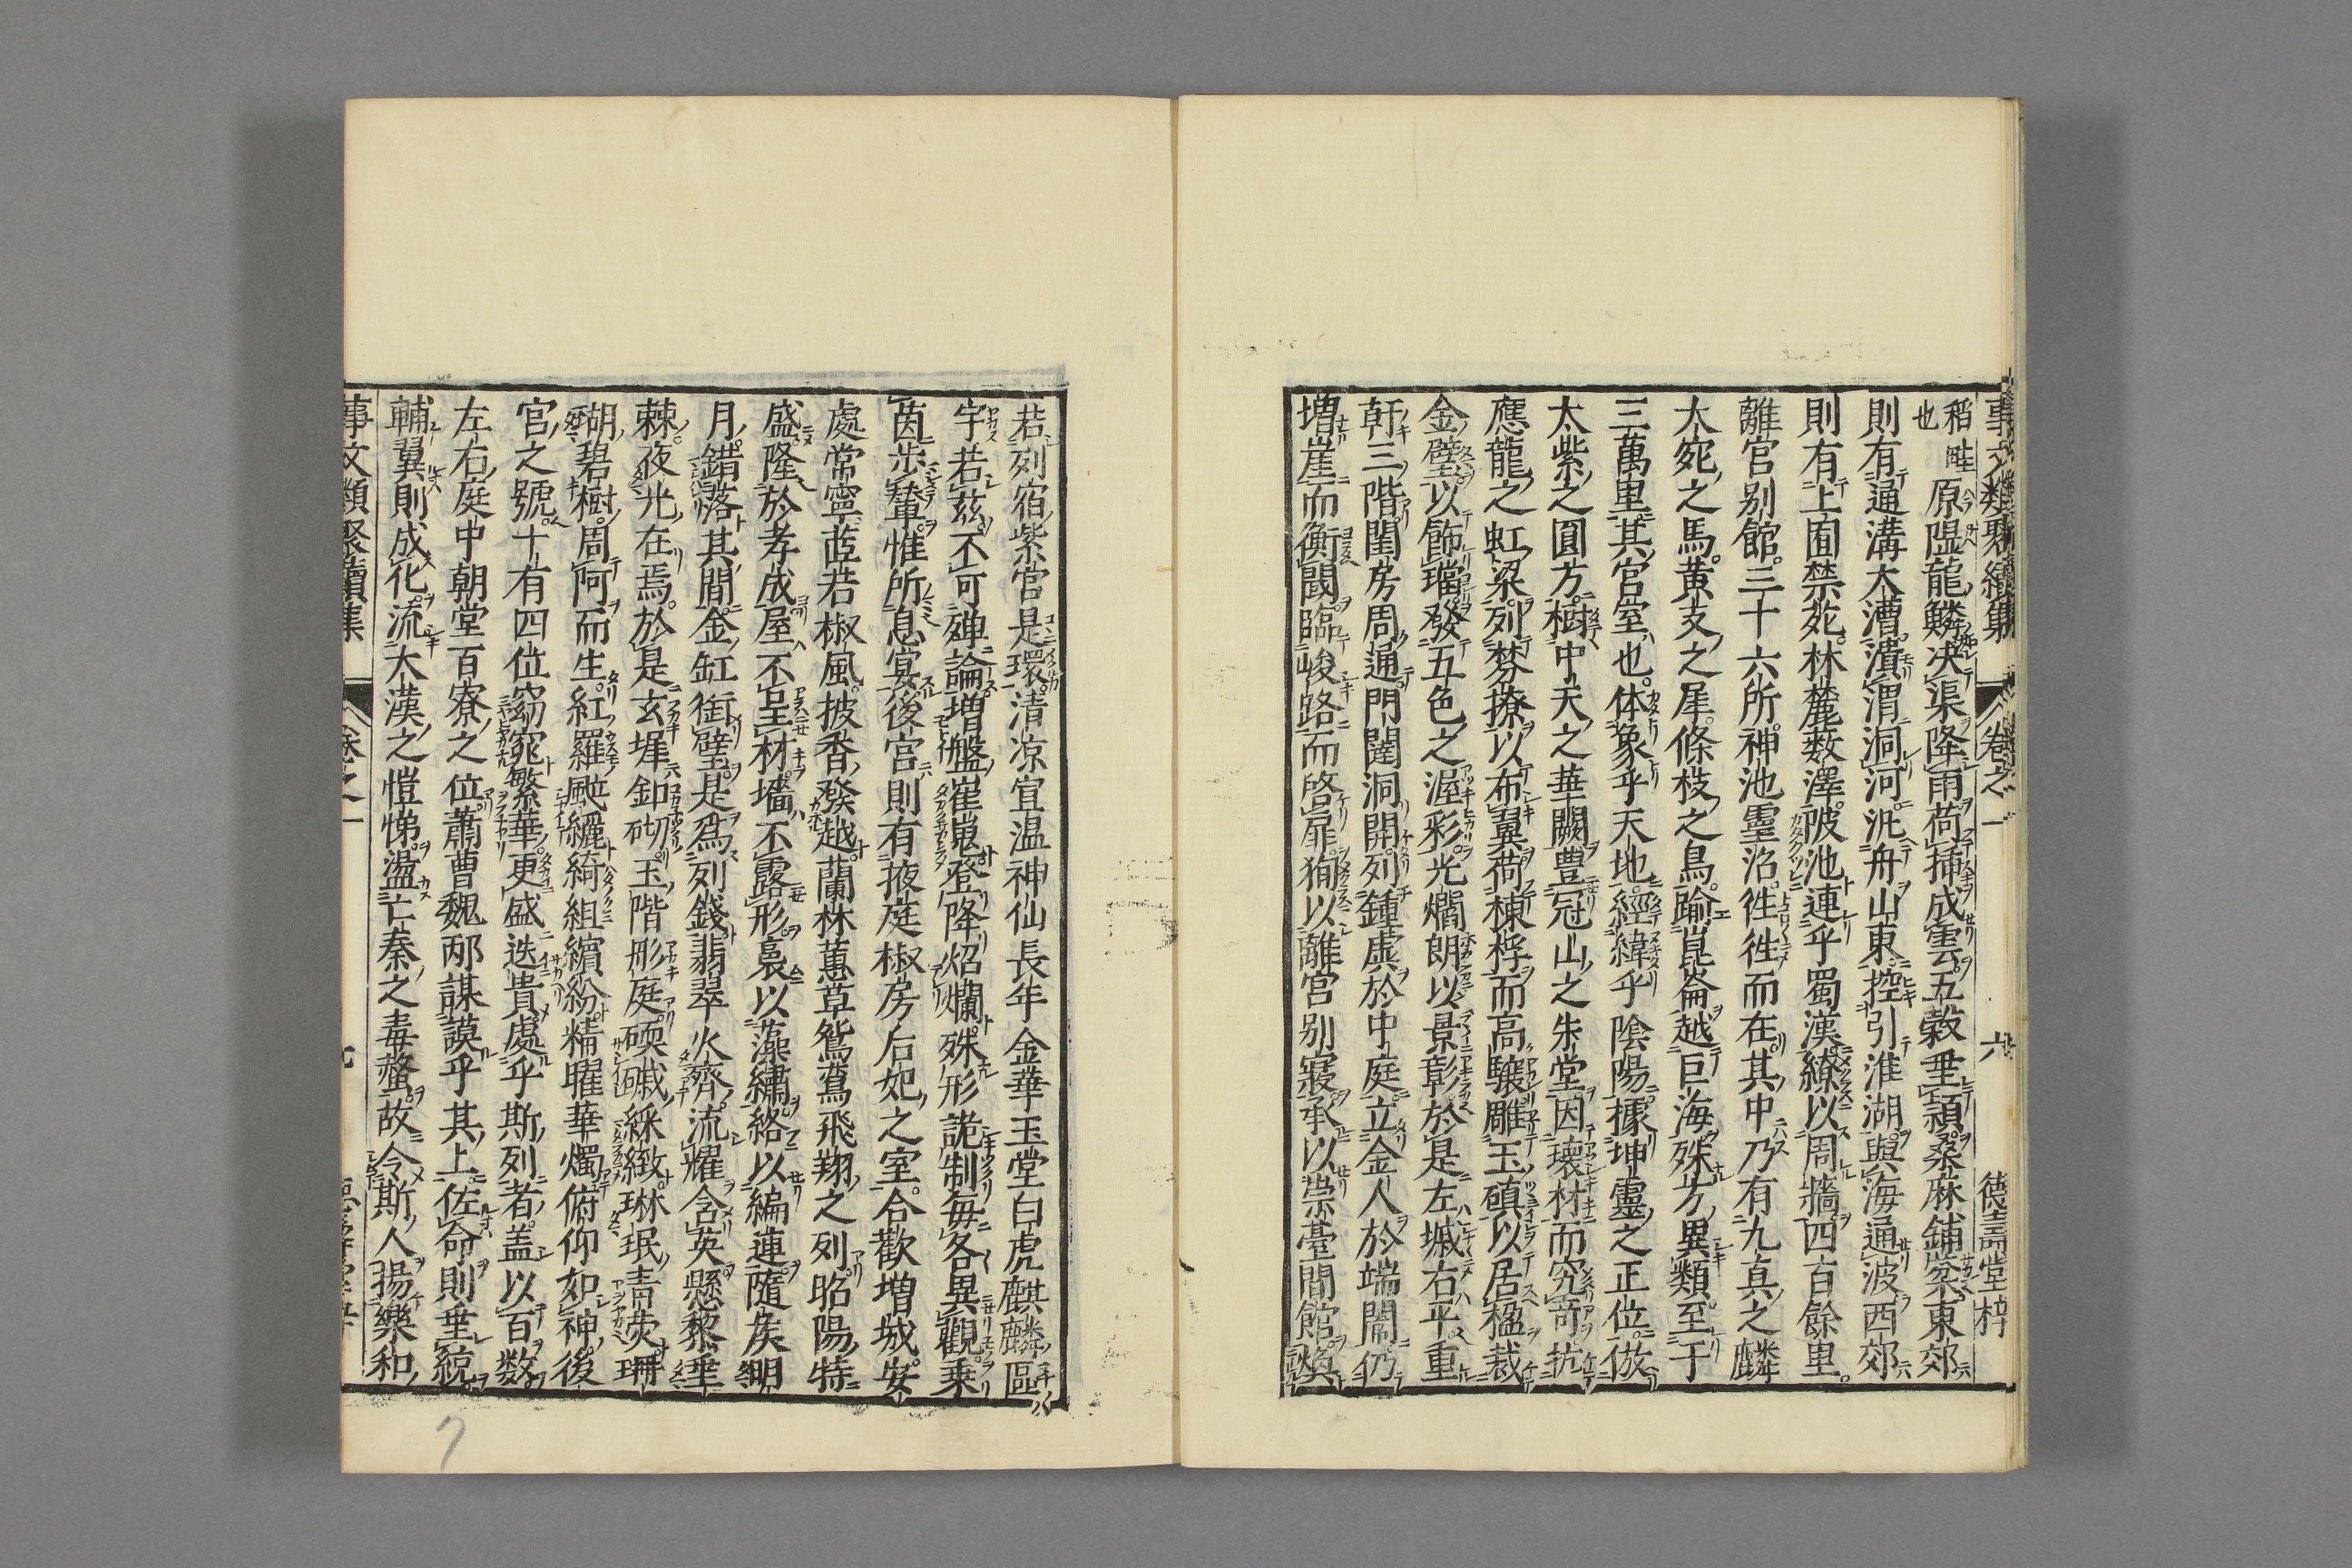 事文類聚續集 卷之一 六 德壽堂梓
稻畦
也
原隰龍鱗决渠降雨荷挿成雲五榖垂頴桑麻鋪棻東郊
則有通溝大漕潰渭洞河泛舟山東控引淮湖與海通波西郊
則有上囿禁苑林麓薮澤陂池連乎蜀漢繚以周牆四百餘里
離宮别館三十六所神池靈沼徃徃而在其中乃有九真之麟
大宛之馬黄支之犀條枝之鳥踰崑崙越巨海殊方異類至于
三萬里其宮室也体象乎天地經緯乎陰陽據坤靈之正位倣
太紫之圓方樹中天之華闕豊冠山之朱堂因瓌材而究奇抗
應龍之虹梁列棼撩以布翼荷棟桴而高驤雕玉磌以居楹裁
金璧以飾璫發五色之渥彩光爓朗以景彰於是左墄右平重
軒三階閨房周通門闥洞開列鍾虡於中庭立金人於端闈仍
増崖而衡閾臨峻路而啓扉狥以離宮别寢承以崇臺間館焕
若列宿紫宮是環清凉宣温神仙長年金華玉堂白虎麒麟區
宇若兹不可殫論増盤崔嵬登降炤爛殊形詭制毎各異觀乗
茵步輦惟所息宴後宮則有掖庭椒房后妃之室合歡増城安
處常寧茝若椒風披香發越蘭林蕙草鴛鸞飛翔之列昭陽特
盛隆於孝成屋不呈材墻不露形裛以藻繡絡以編連隨矦明
月錯落其間金缸銜璧是爲列錢翡翠火齊流耀含英懸黎垂
棘夜光在焉於是玄墀釦砌玉階彤庭碝磩綵緻琳珉青熒珊
瑚碧樹周阿而生紅羅颯纚綺組繽紛精曜華燭俯仰如神後
宮之號十有四位窈窕繁華更盛迭貴處乎斯列者盖以百数
左右庭中朝堂百寮之位蕭曹魏邴謀謨乎其上佐命則垂統
輔翼則成化流大漢之愷悌盪亡秦之毒螫故令斯人揚樂和
事文類聚續集 卷之一 七
7